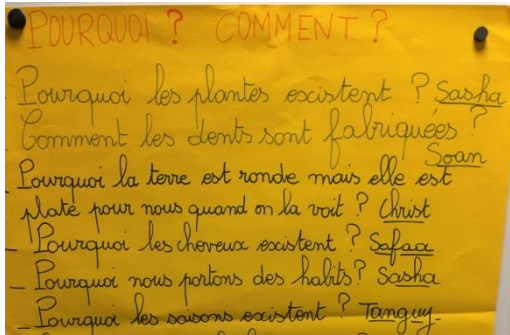 POURQUOI ? COMMENT ?
Pourquoi les plantes existent ? Sasha
Comment les dents sont fabriquées ?
Soan
_ Pourquoi la terre est ronde mais elle est
plate pour nous quand on la voit ? Christ
_ Pourquoi les cheveux existent ? Safaa
_ Pourquoi nous portons des habits ? Sasha
_ Pourquoi les saisons existent ? Tanguy